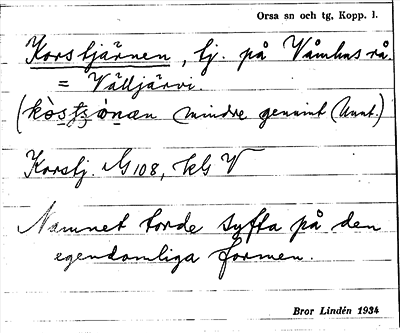 Orsa sn och tg, Kopp. l.
Korstjärnen, tj. på Våmhus rå.
= Välljärvi.
( mindre genuint (Munt.)
Korstj. G 108, kG V
Namnet torde syfta på den
egendomliga formen.
Bror Lindén 1934